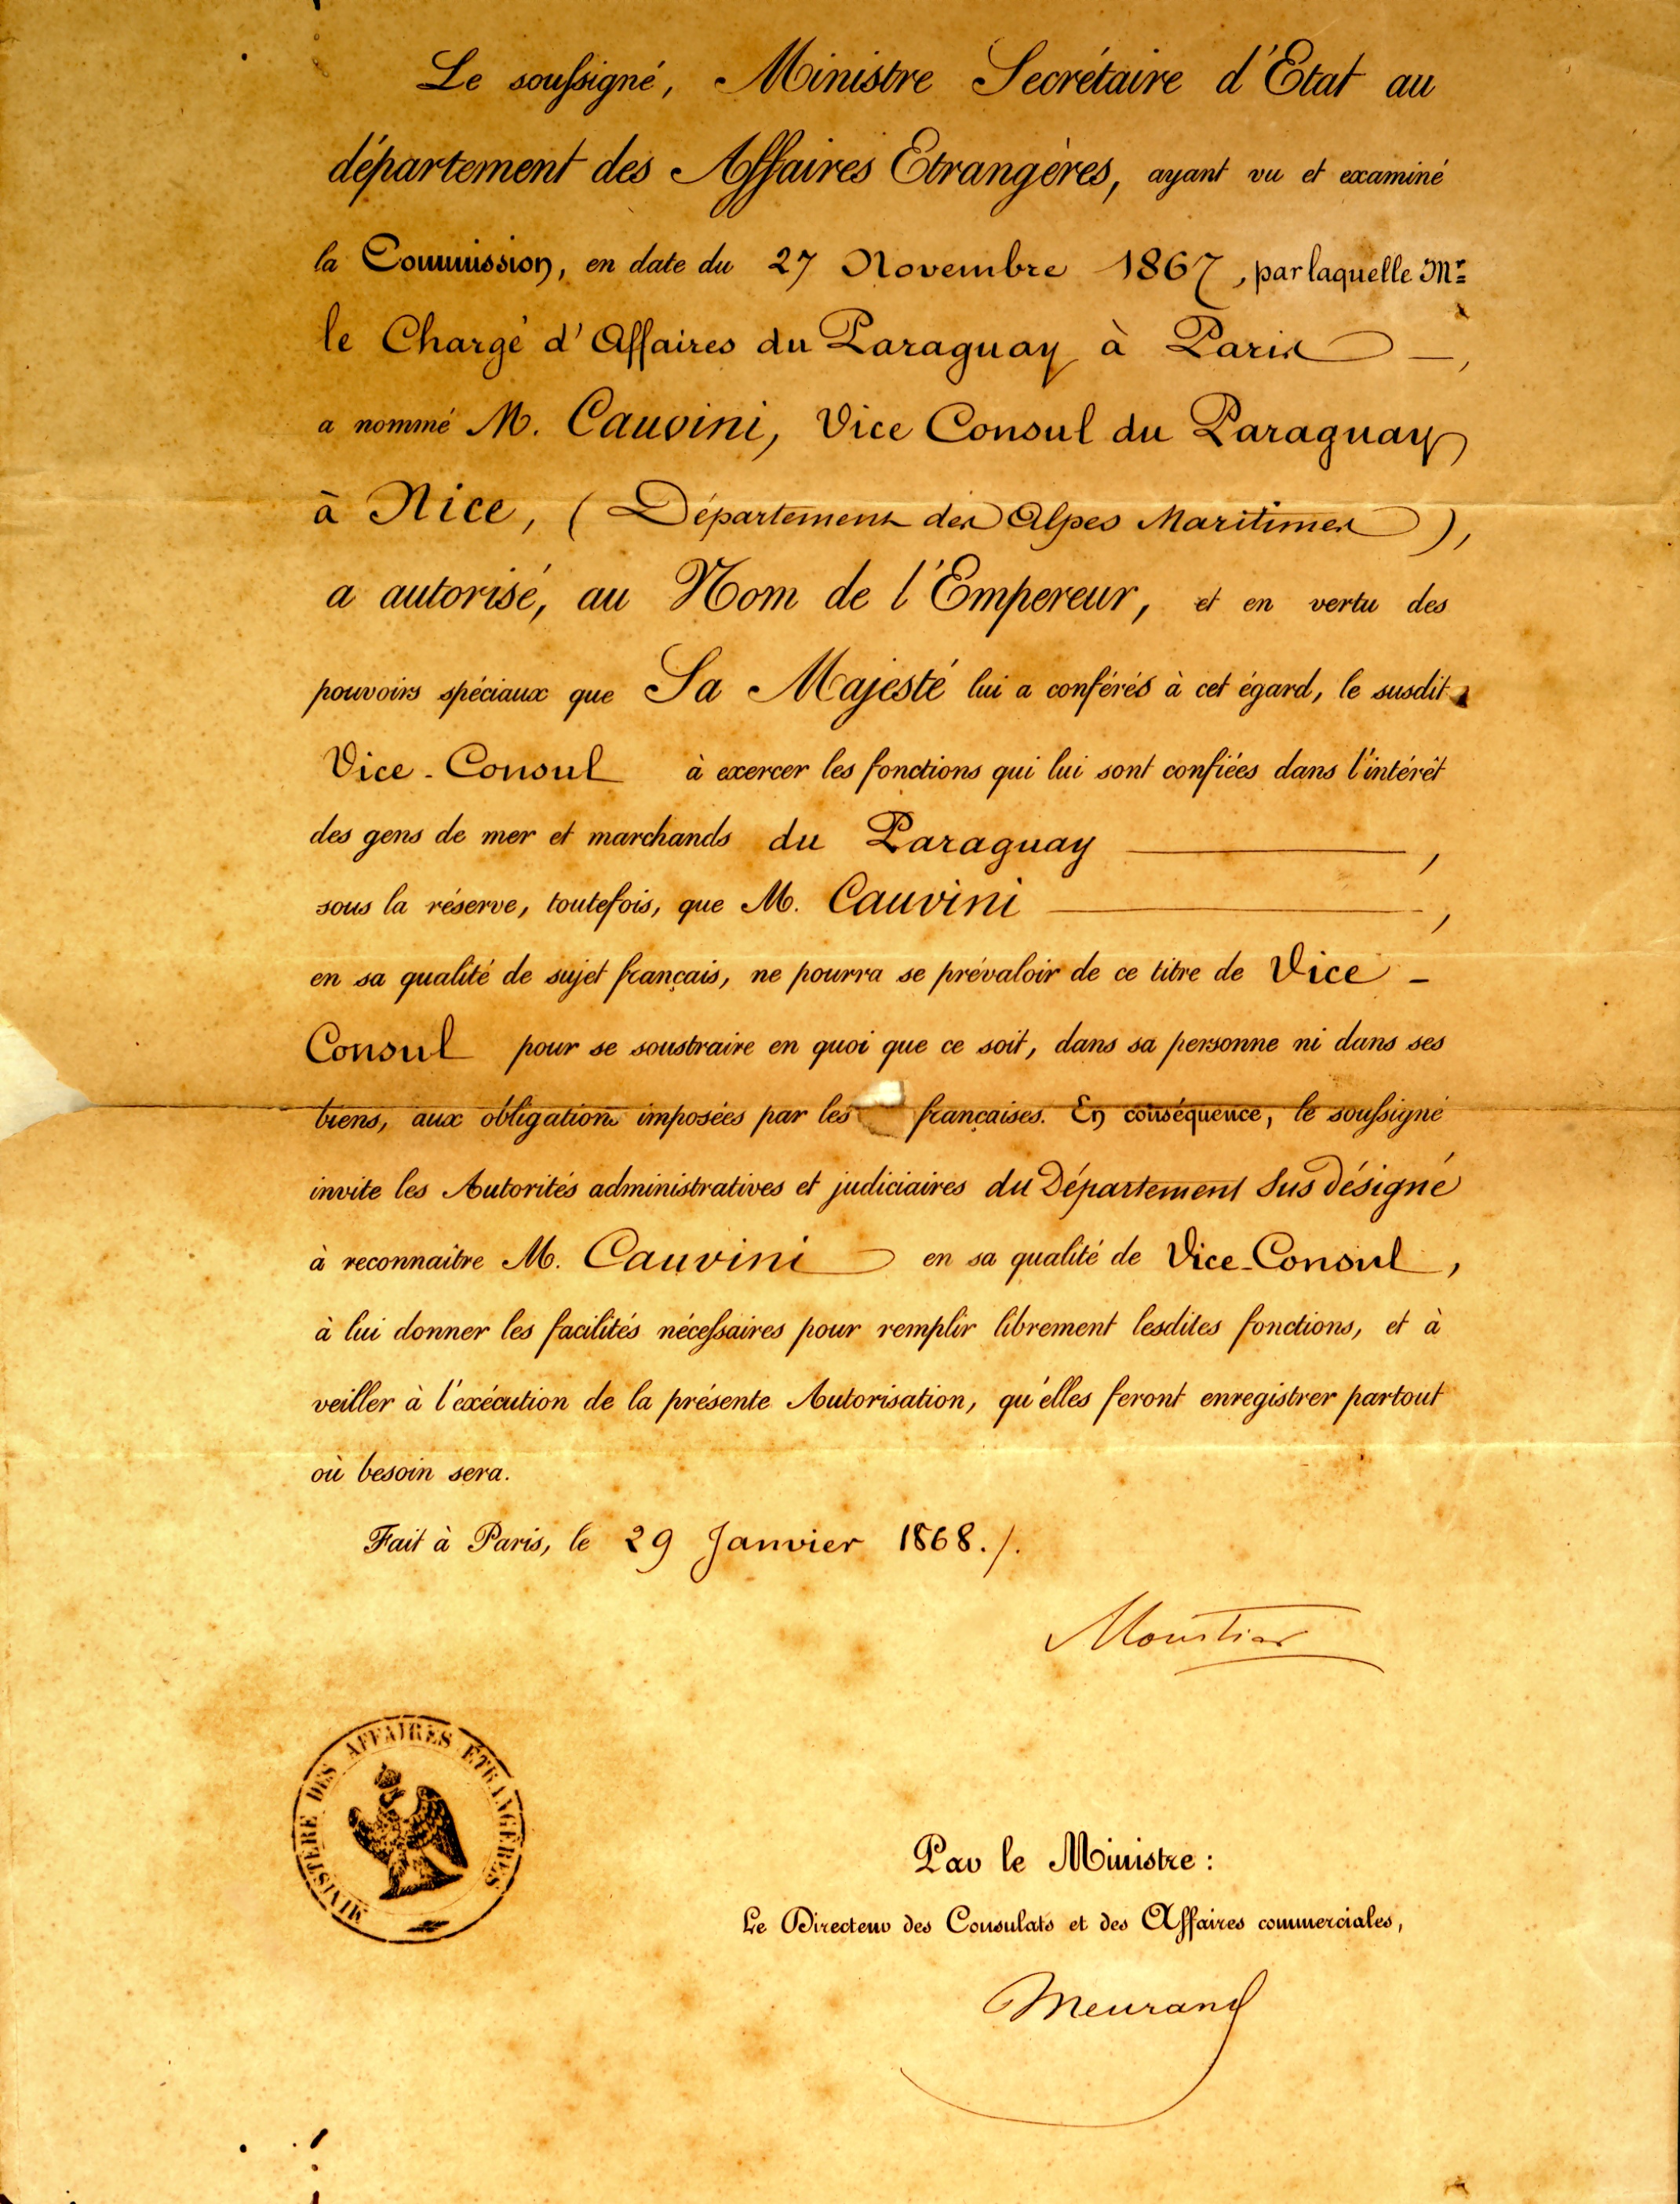 Le soussigné, Ministre Secrétaire d'Etat au
département des Affaires Etrangères, ayant vu et examiné
la Commission, en date du 27 Novembre 1867, par laquelle Mr
le Chargé d'Affaires du Paraguay à Paris —,
a nommé M. Cauvini, Vice Consul du Paraguay
à Nice, (Département des Alpes Maritimes),
a autorisé, au Nom de l'Empereur, et en vertu des
pouvoirs spéciaux que Sa Majesté lui a conférés à cet égard, le susdit
Vice-Consul à exercer les fonctions qui lui sont confiées dans l'intérêt
des gens de mer et marchands du Paraguay —,
sous la réserve, toutefois, que M. Cauvini —,
en sa qualité de sujet français, ne pourra se prévaloir de ce titre de Vice-
Consul pour se soustraire en quoi que ce soit, dans sa personne ni dans ses
biens, aux obligations imposées par les françaises. En conséquence, le soussigné
invite les Autorités administratives et judiciaires du Département Sus désigné
à reconnaitre M. Cauvini en sa qualité de Vice-Consul,
à lui donner les facilités nécessaires pour remplir librement lesdites fonctions, et à
veiller à l'exécution de la présente Autorisation, qu'elles feront enregistrer partout
où besoin sera.
Fait à Paris, le 29 Janvier 1868./.
Moustier
MINISTÈRE DES AFFAIRES ÉTRANGÈRES
Par le Ministre:
Le Directeur des Consulats et des Affaires commerciales,
Meurand